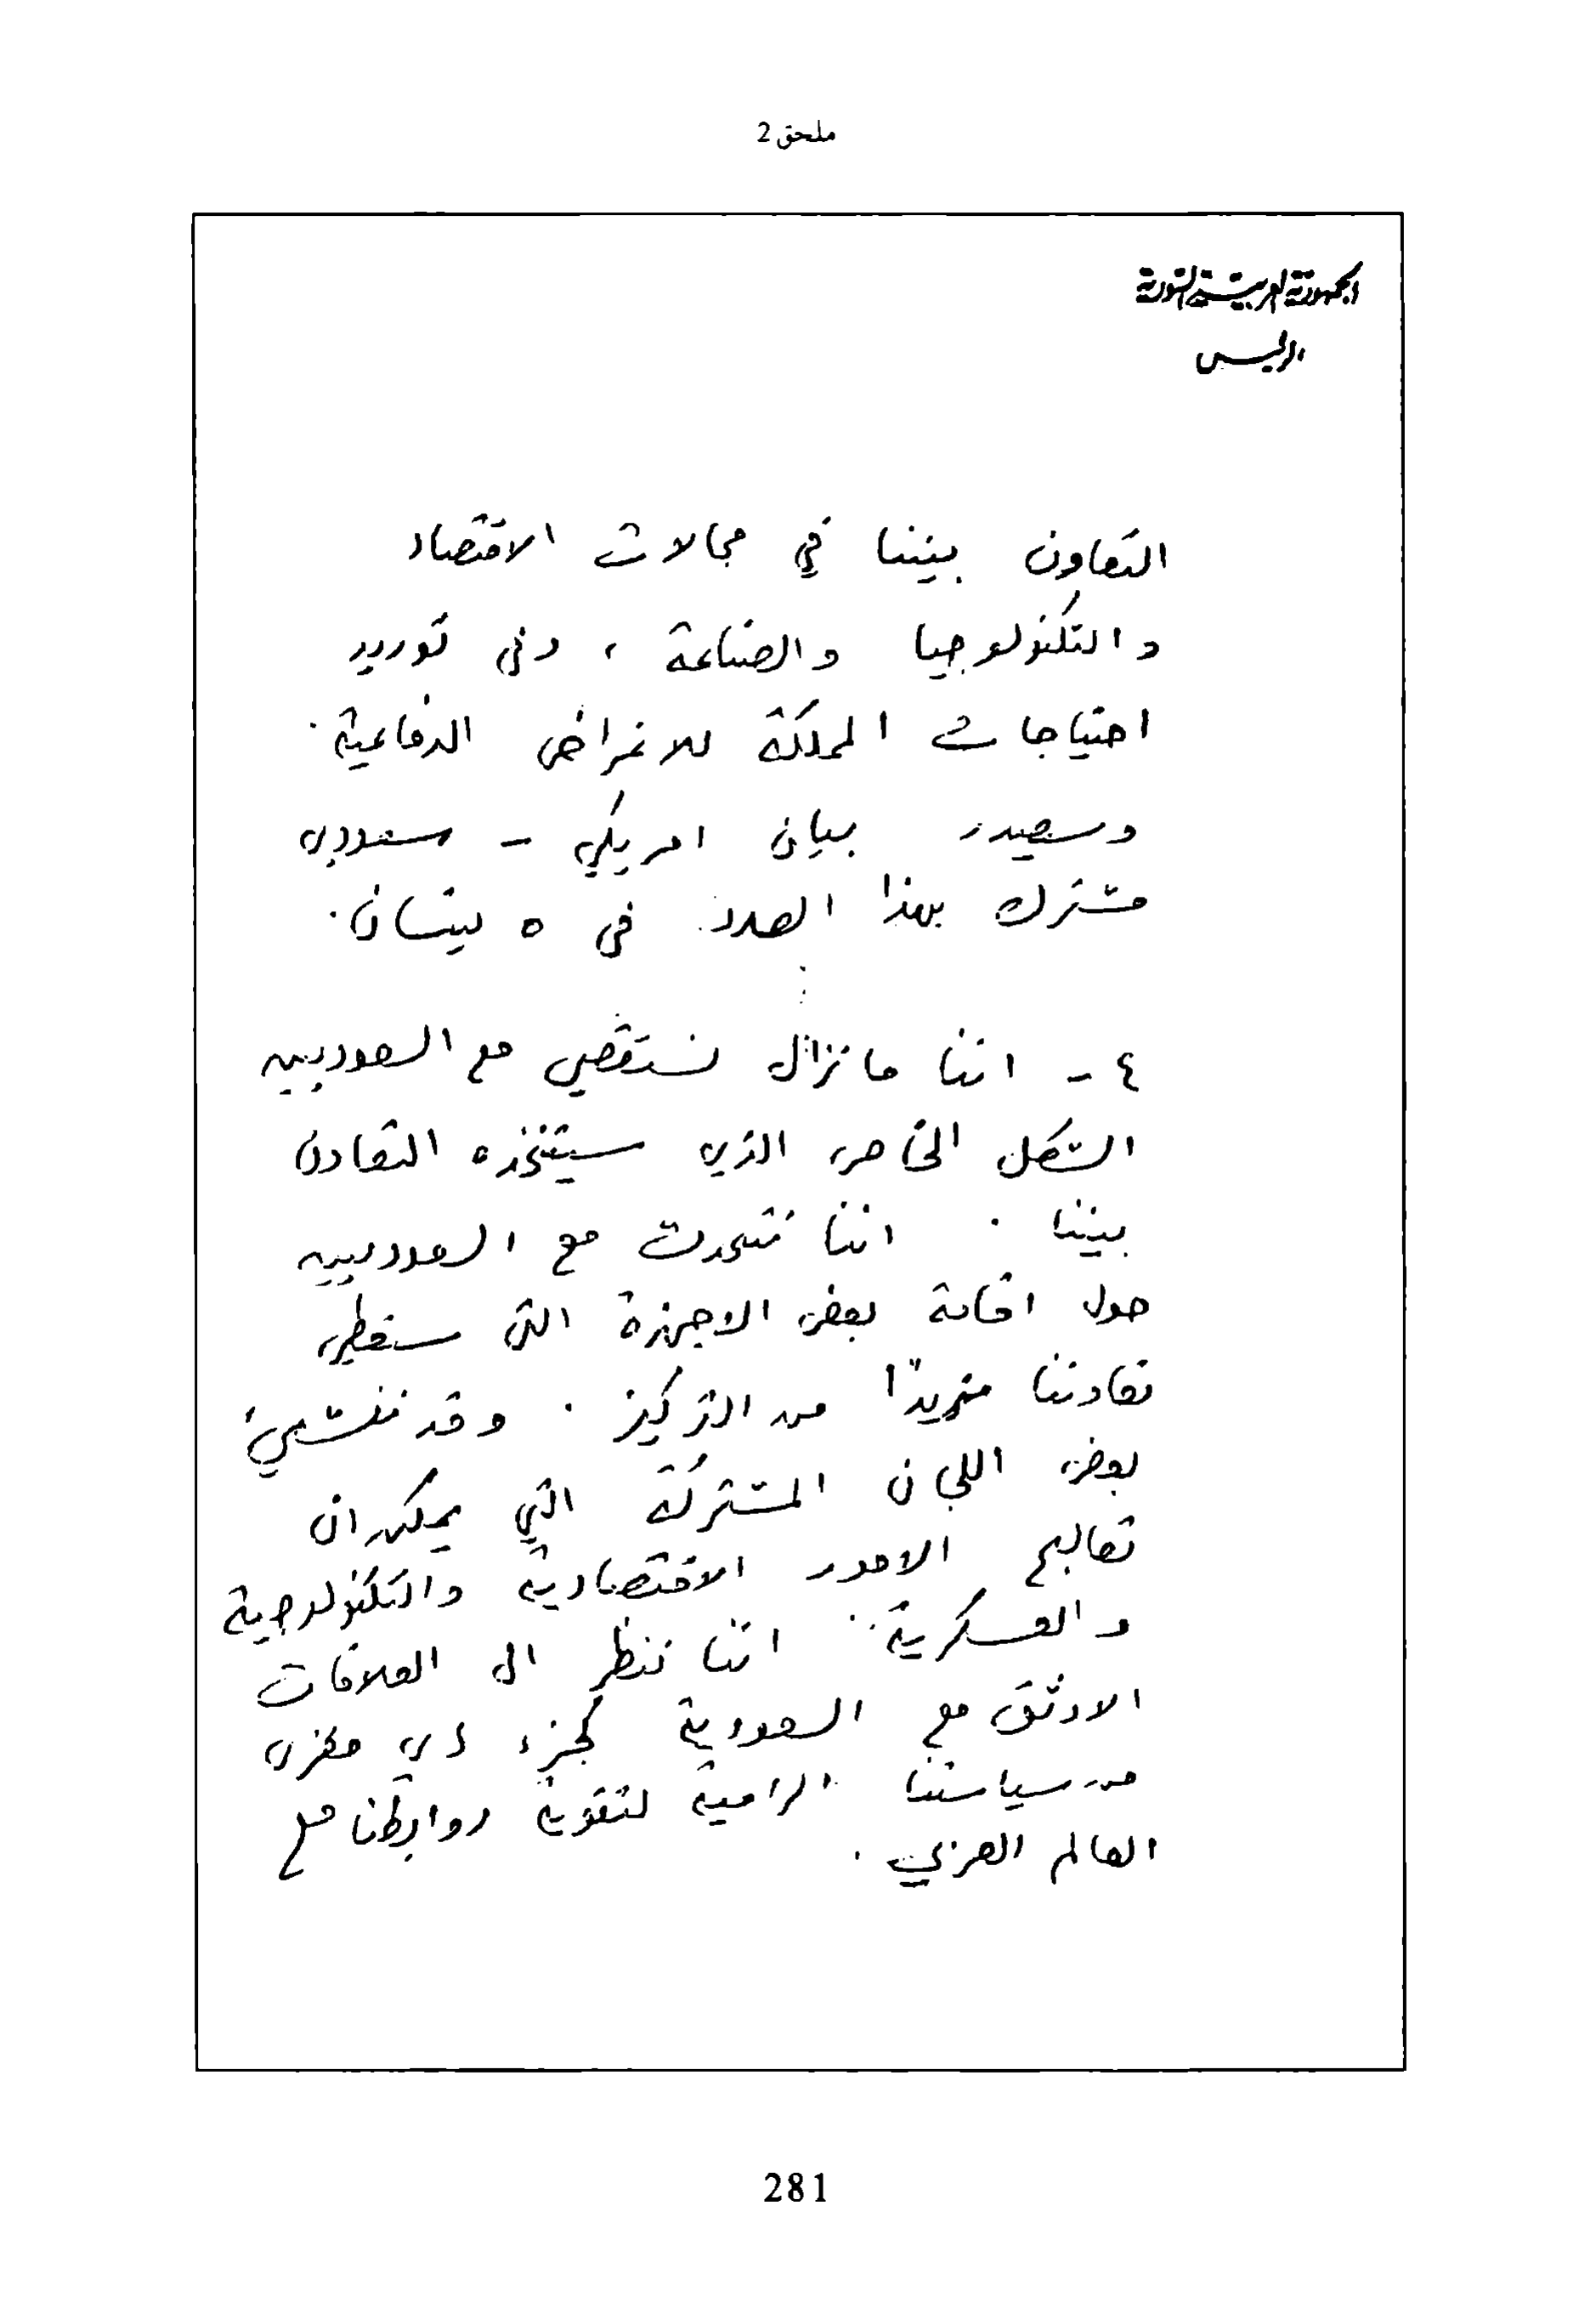 ملحق 2
الجمهورية العربية السورية
الرئيس
التعاون بيننا في مجالات الاقتصاد
والتكنولوجيا والصناعة ، وفي توريد
احتياجات المملكة للاغراض الدفاعية .
وسيصدر بيان امريكي - سعودي
مشترك بهذا الصدد في ٥ نيسان .
٤ - اننا ما نزال نستقصي مع السعوديين
الشكل الخاص الذي سيتخذه التعاون
بيننا . اننا نتحدث مع السعوديين
حول اقامة بعض الاجهزة التي ستعطي
تعاوننا مزيدًا من التركيز . وقد ننشيء
بعض اللجان المشتركة التي يمكن ان
تعالج الامور الاقتصادية والتكنولوجية
والعسكرية . اننا ننظر الى العلاقات
الاوثق مع السعودية كجزء ذي مغزى
من سياستنا الرامية لتقوية روابطنا مع
العالم العربي .
281